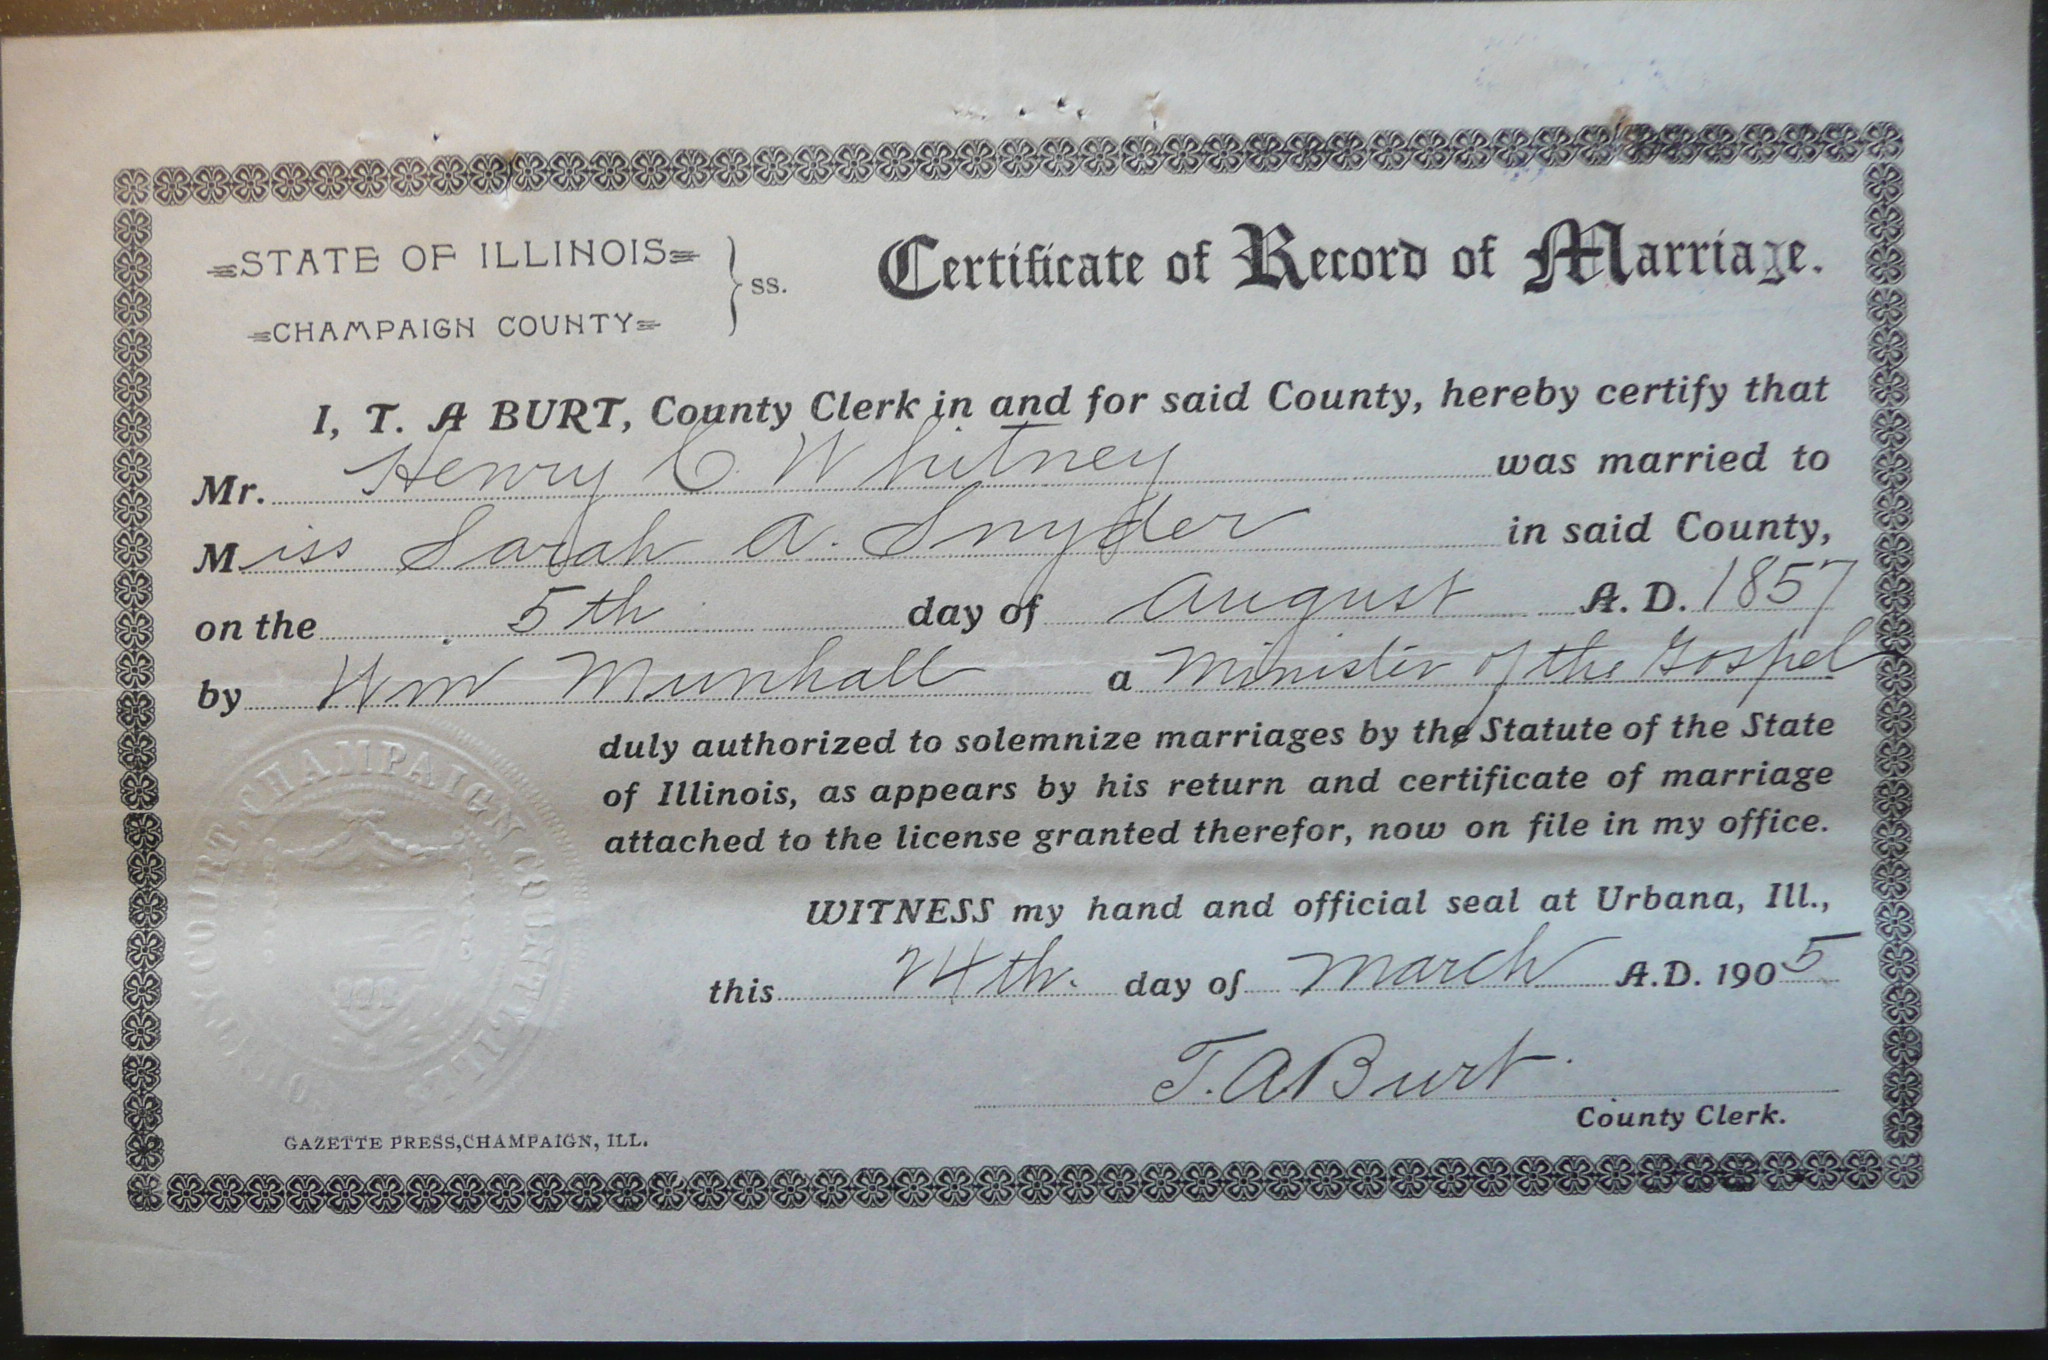 STATE OF ILLINOIS
CHAMPAIGN COUNTY
} ss.
Certificate of Record of Marriage.
I, T. A BURT, County Clerk in and for said County, hereby certify that
Mr. Henry C. Whitney was married to
Miss Sarah A. Snyder in said County,
on the 5th day of August A. D. 1857
by Wm Munhall a Minister of the Gospel
duly authorized to solemnize marriages by the Statute of the State
of Illinois, as appears by his return and certificate of marriage
attached to the license granted therefor, now on file in my office.
WITNESS my hand and official seal at Urbana, Ill.,
this 24th. day of March A.D. 1905
T. A Burt.
County Clerk.
GAZETTE PRESS, CHAMPAIGN, ILL.
COURT, CHAMPAIGN COUNTY